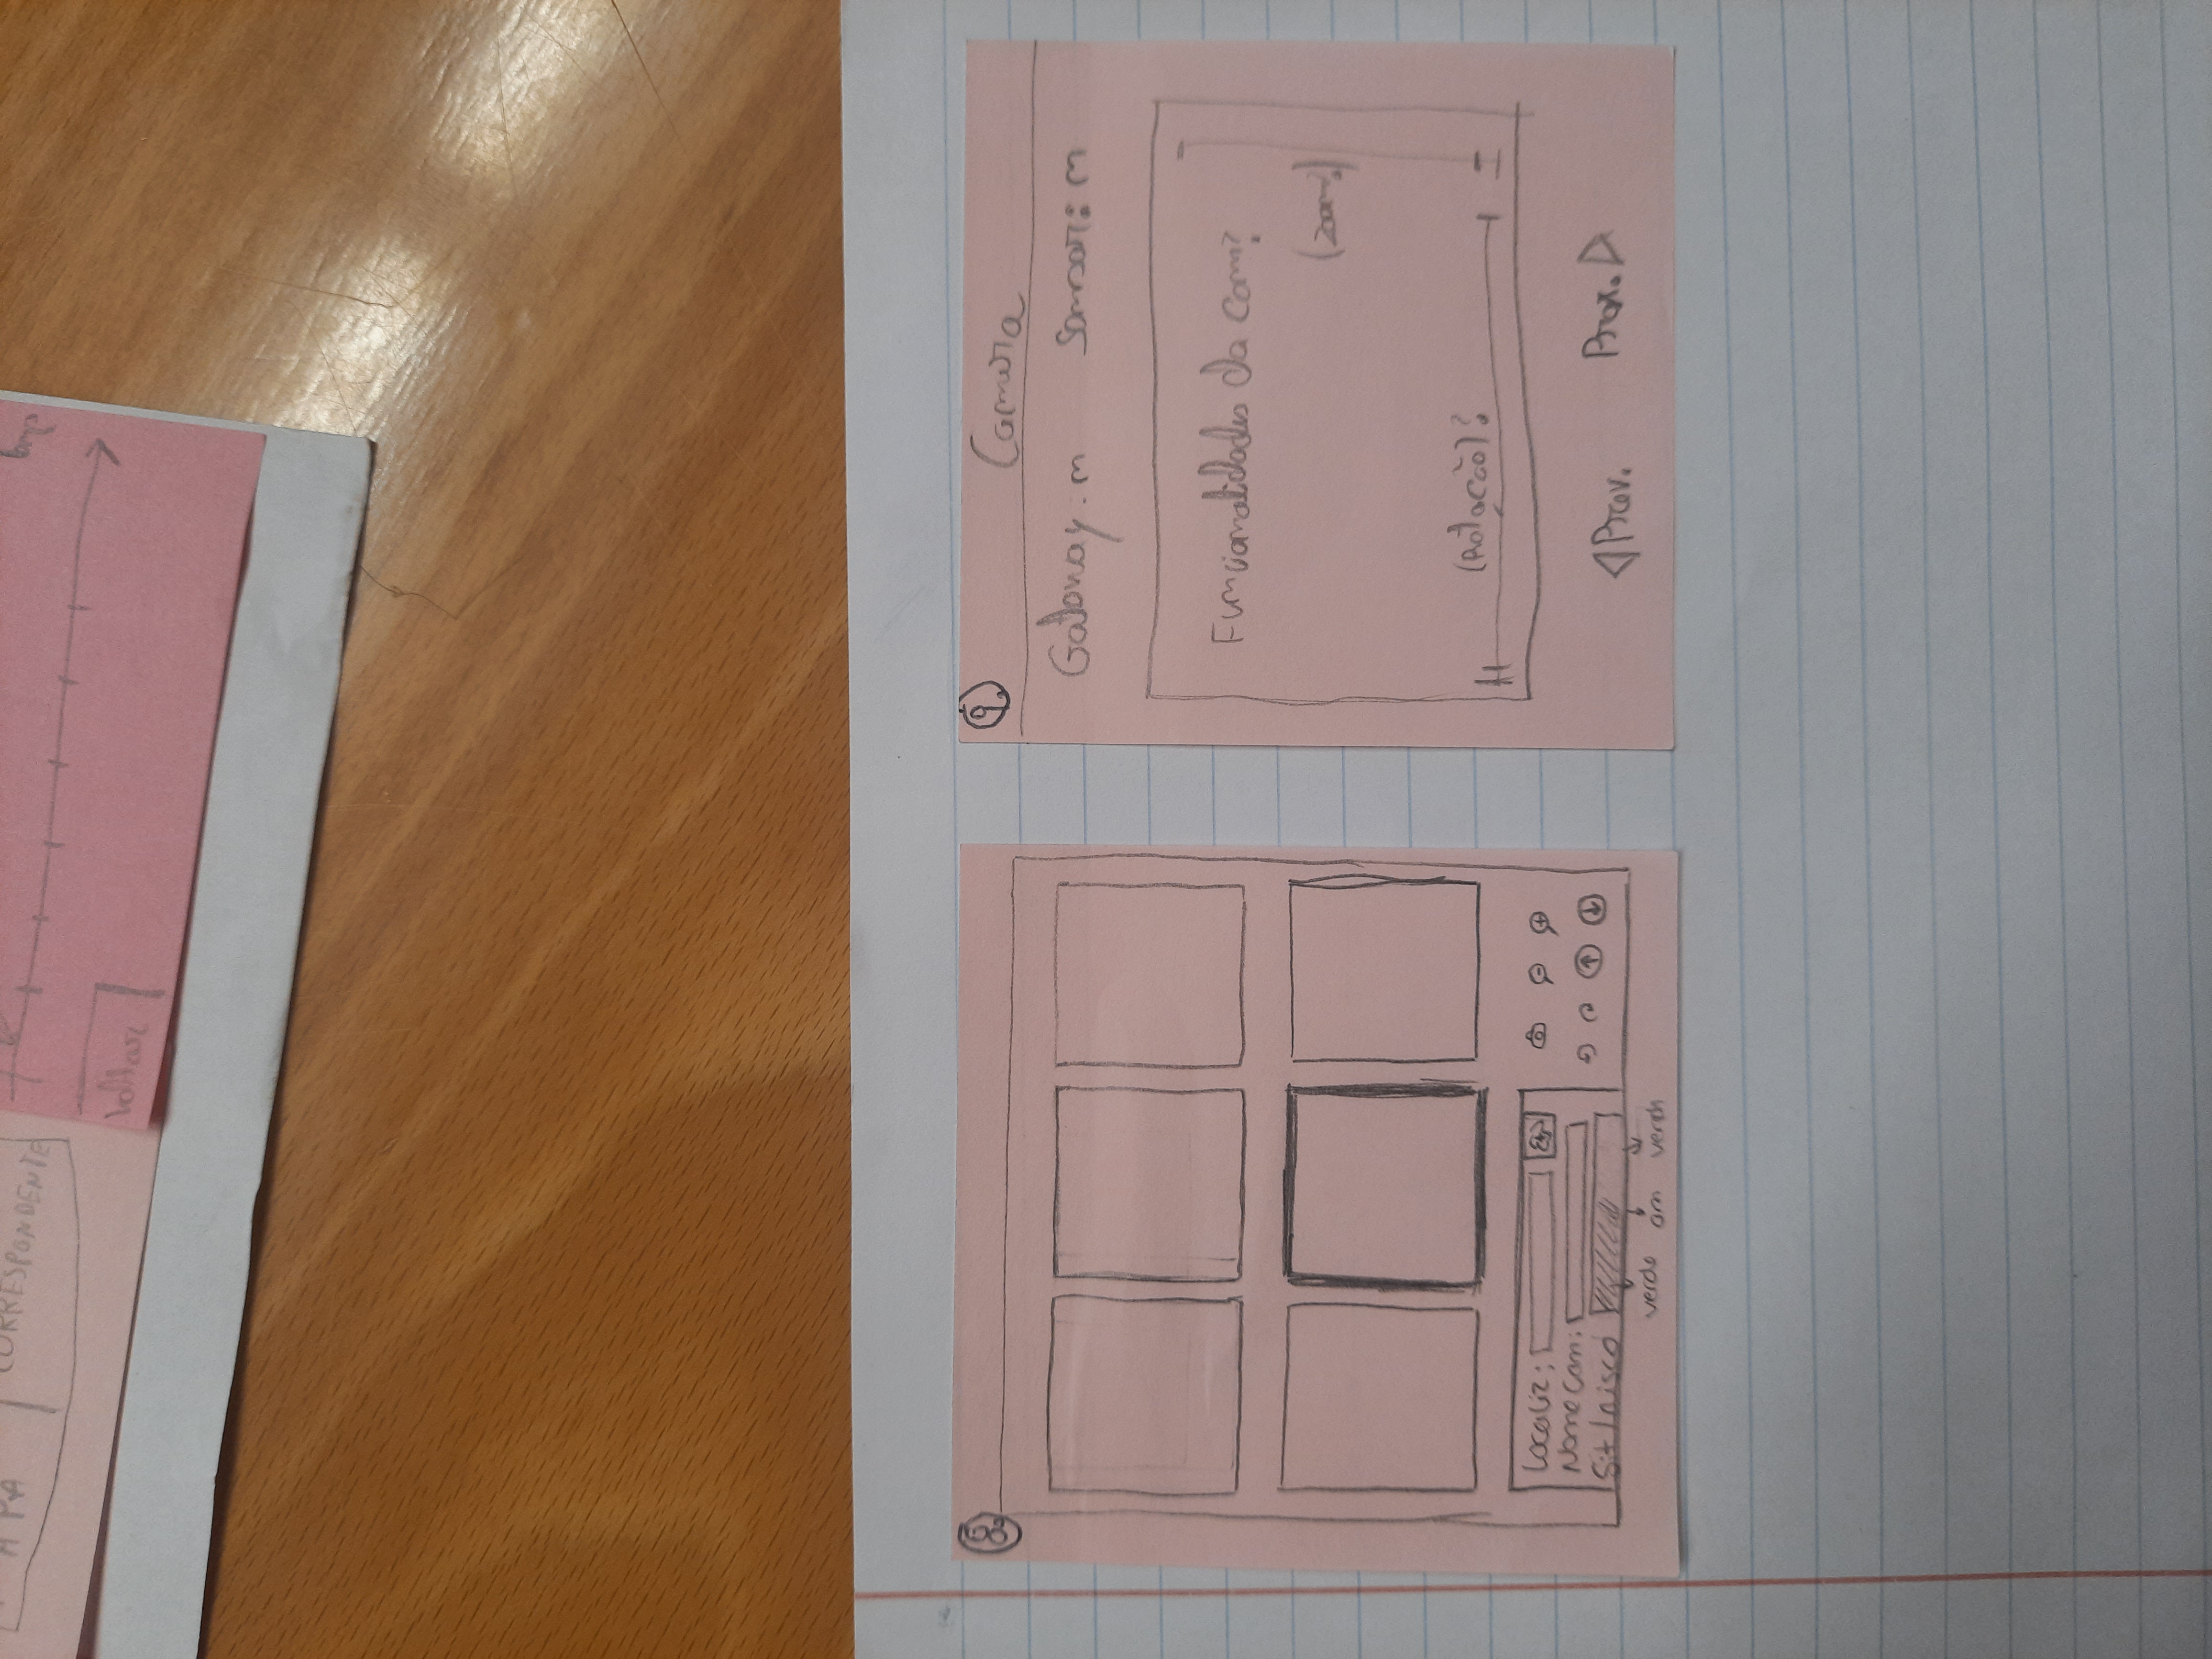 APA
CORRESPONDENTE
Voltar
8.
Localiz:
Nome Cam:
Sit/risco
verde am verm
9.
Camera
Gateway: n Sensor: n
Funcionalidades da cam?
(zoom?)
(Rotação)?
Prev. Prox.